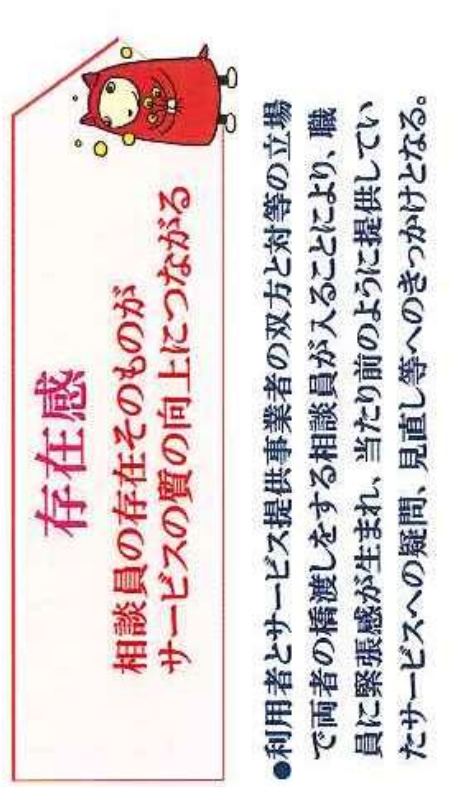 存在感
相談員の存在そのものが
サービスの質の向上につながる
●利用者とサービス提供事業者の双方と対等の立場
で両者の橋渡しをする相談員が入ることにより、職
員に緊張感が生まれ、当たり前のように提供してい
たサービスへの疑問、見直し等へのきっかけとなる。